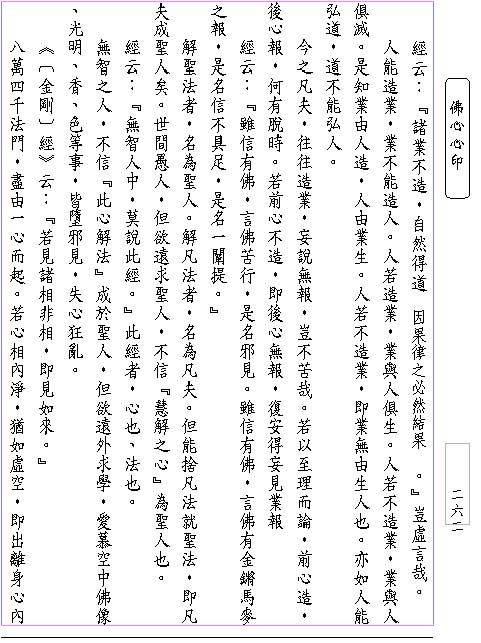 佛心心印
二六二
經云：『諸業不造，自然得道　因果律之必然結果　。』豈虛言哉。
人能造業，業不能造人。人若造業，業與人俱生。人若不造業，業與人
俱滅。是知業由人造，人由業生。人若不造業，即業無由生人也。亦如人能
弘道，道不能弘人。
今之凡夫，往往造業，妄說無報，豈不苦哉。若以至理而論，前心造，
後心報，何有脫時。若前心不造，即後心無報，復安得妄見業報
經云：『雖信有佛，言佛苦行，是名邪見。雖信有佛，言佛有金鏘馬麥
之報，是名信不具足，是名一闡提。』
解聖法者，名為聖人。解凡法者，名為凡夫。但能捨凡法就聖法，即凡
夫成聖人矣。世間愚人，但欲遠求聖人，不信『慧解之心』為聖人也。
經云：『無智人中，莫說此經。』此經者，心也、法也。
無智之人，不信『此心解法』成於聖人，但欲遠外求學，愛慕空中佛像
、光明、香、色等事，皆墮邪見，失心狂亂。
《〔金剛〕經》云：『若見諸相非相，即見如來。』
八萬四千法門，盡由一心而起。若心相內淨，猶如虛空，即出離身心內